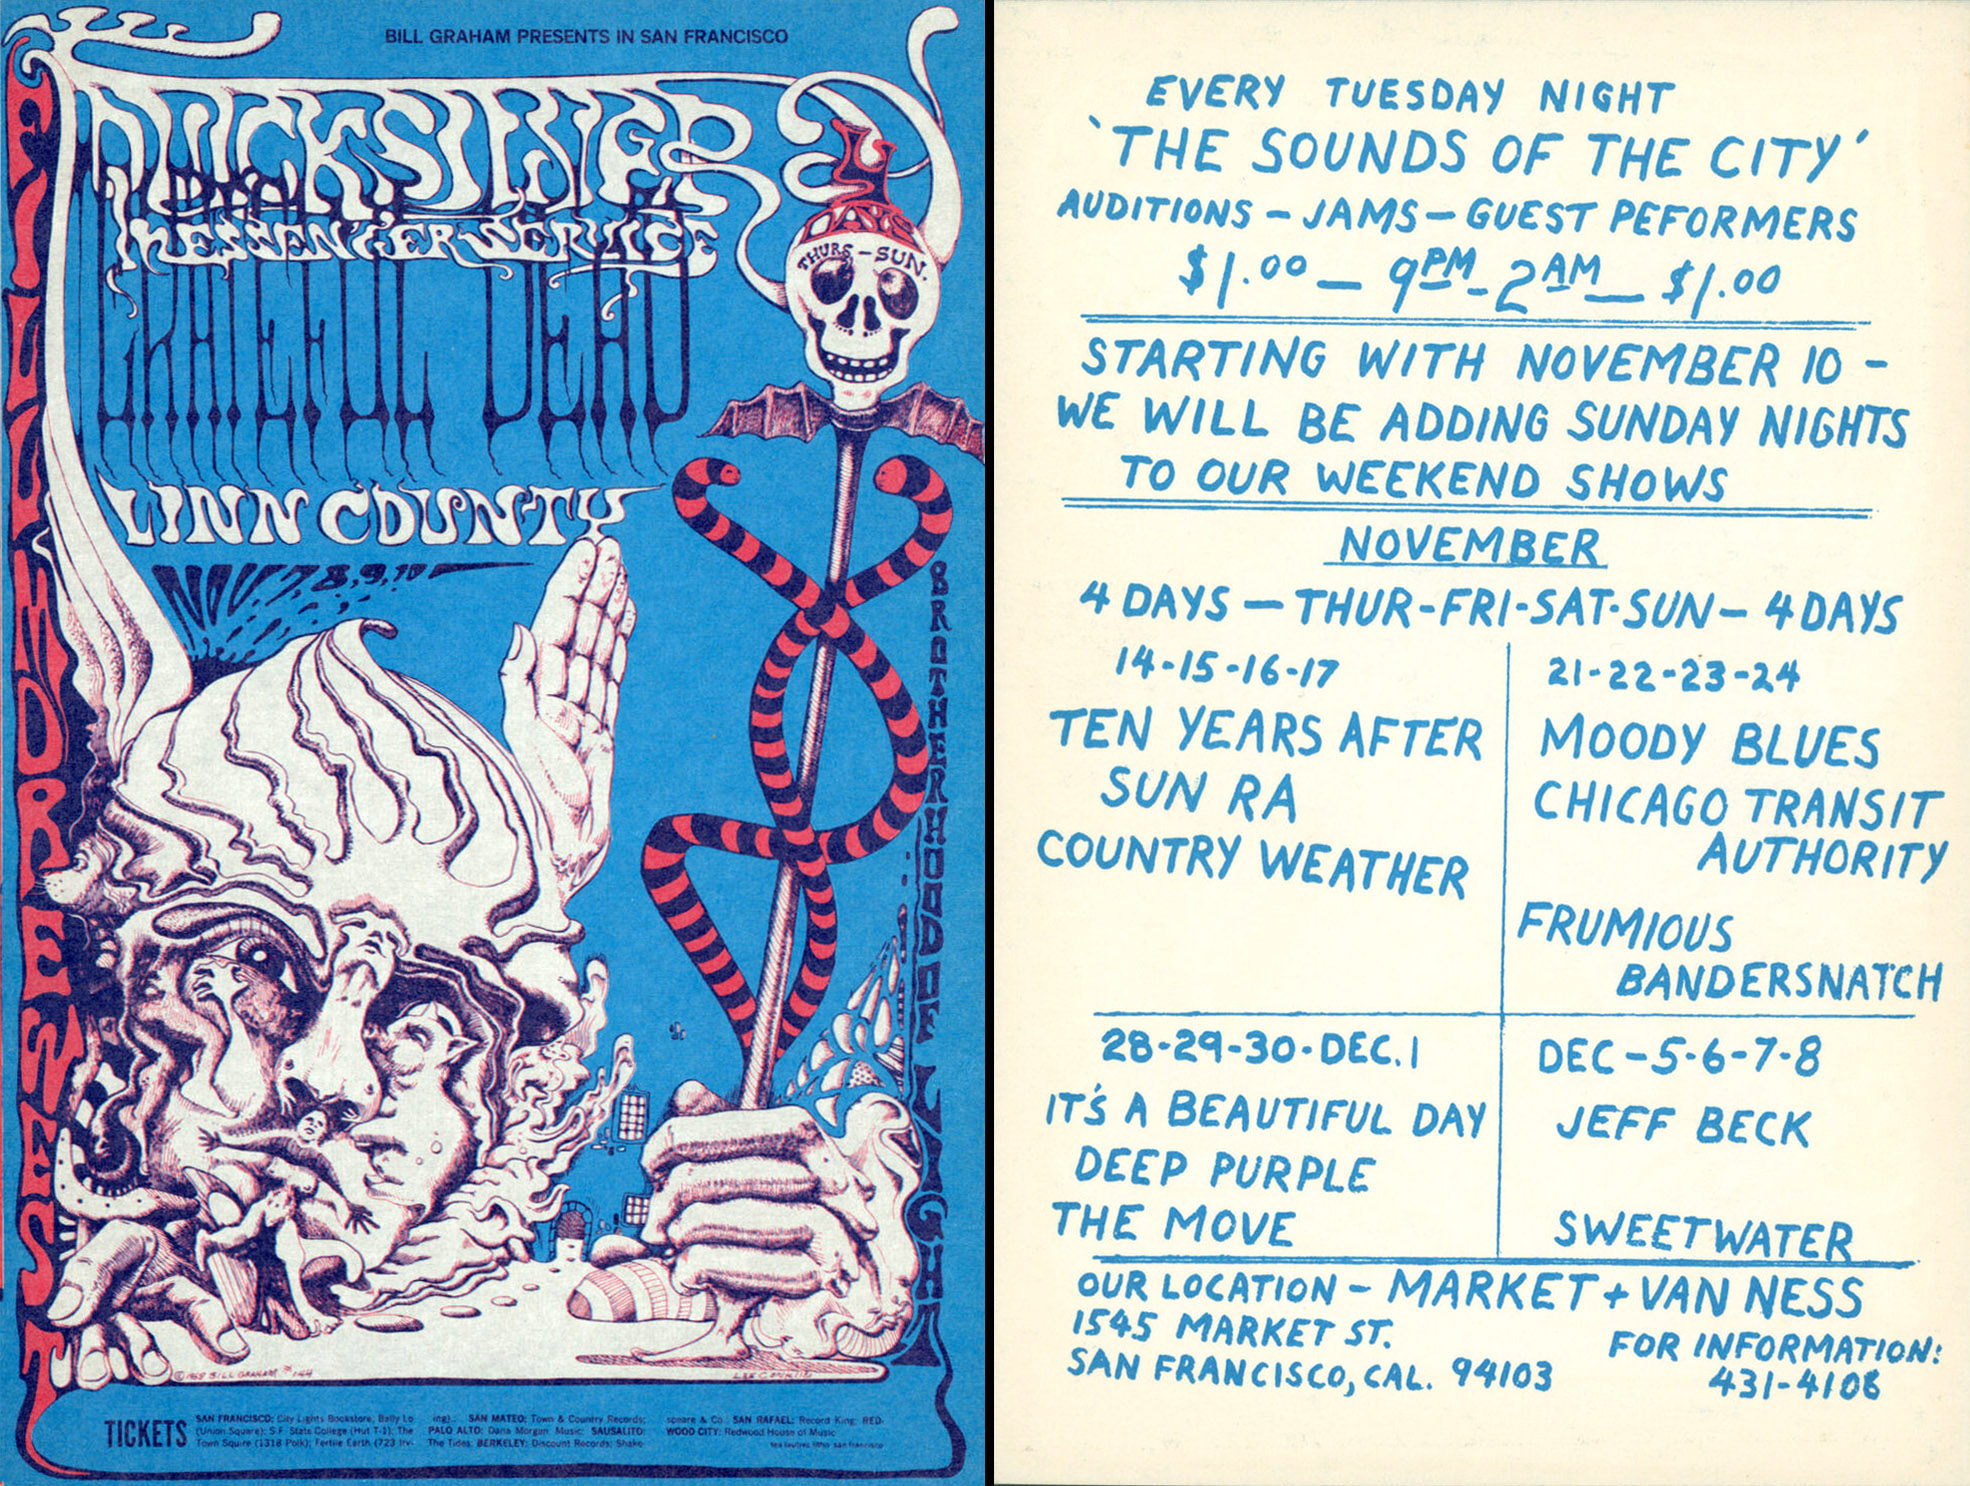 BILL GRAHAM PRESENTS IN SAN FRANCISCO
FILLMORE WEST
QUICKSILVER
MESSENGER SERVICE
GRATEFUL DEAD
LINN COUNTY
NOV. 7, 8, 9, 10
4
DAYS
THURS-SUN.
BROTHERHOOD OF LIGHT
© 1968 BILL GRAHAM #144
LEE CONKLIN
TICKETS
SAN FRANCISCO: City Lights Bookstore, Bally Lo
(Union Square); S.F. State College (Hut T-1); The
Town Squire (1318 Polk); Fertile Earth (723 Irv-
ing). SAN MATEO: Town & Country Records;
PALO ALTO: Dana Morgan Music; SAUSALITO:
The Tides; BERKELEY: Discount Records; Shake-
speare & Co. SAN RAFAEL: Record King; RED-
WOOD CITY: Redwood House of Music
tea lautrec litho san francisco
EVERY TUESDAY NIGHT
'THE SOUNDS OF THE CITY'
AUDITIONS - JAMS - GUEST PEFORMERS
$1.00 - 9PM-2AM - $1.00
STARTING WITH NOVEMBER 10 -
WE WILL BE ADDING SUNDAY NIGHTS
TO OUR WEEKEND SHOWS
NOVEMBER
4 DAYS - THUR-FRI-SAT-SUN - 4 DAYS
14-15-16-17
TEN YEARS AFTER
SUN RA
COUNTRY WEATHER
21-22-23-24
MOODY BLUES
CHICAGO TRANSIT
AUTHORITY
FRUMIOUS
BANDERSNATCH
28-29-30-DEC. 1
IT'S A BEAUTIFUL DAY
DEEP PURPLE
THE MOVE
DEC-5-6-7-8
JEFF BECK
SWEETWATER
OUR LOCATION - MARKET + VAN NESS
1545 MARKET ST.
SAN FRANCISCO, CAL. 94103
FOR INFORMATION:
431-4106